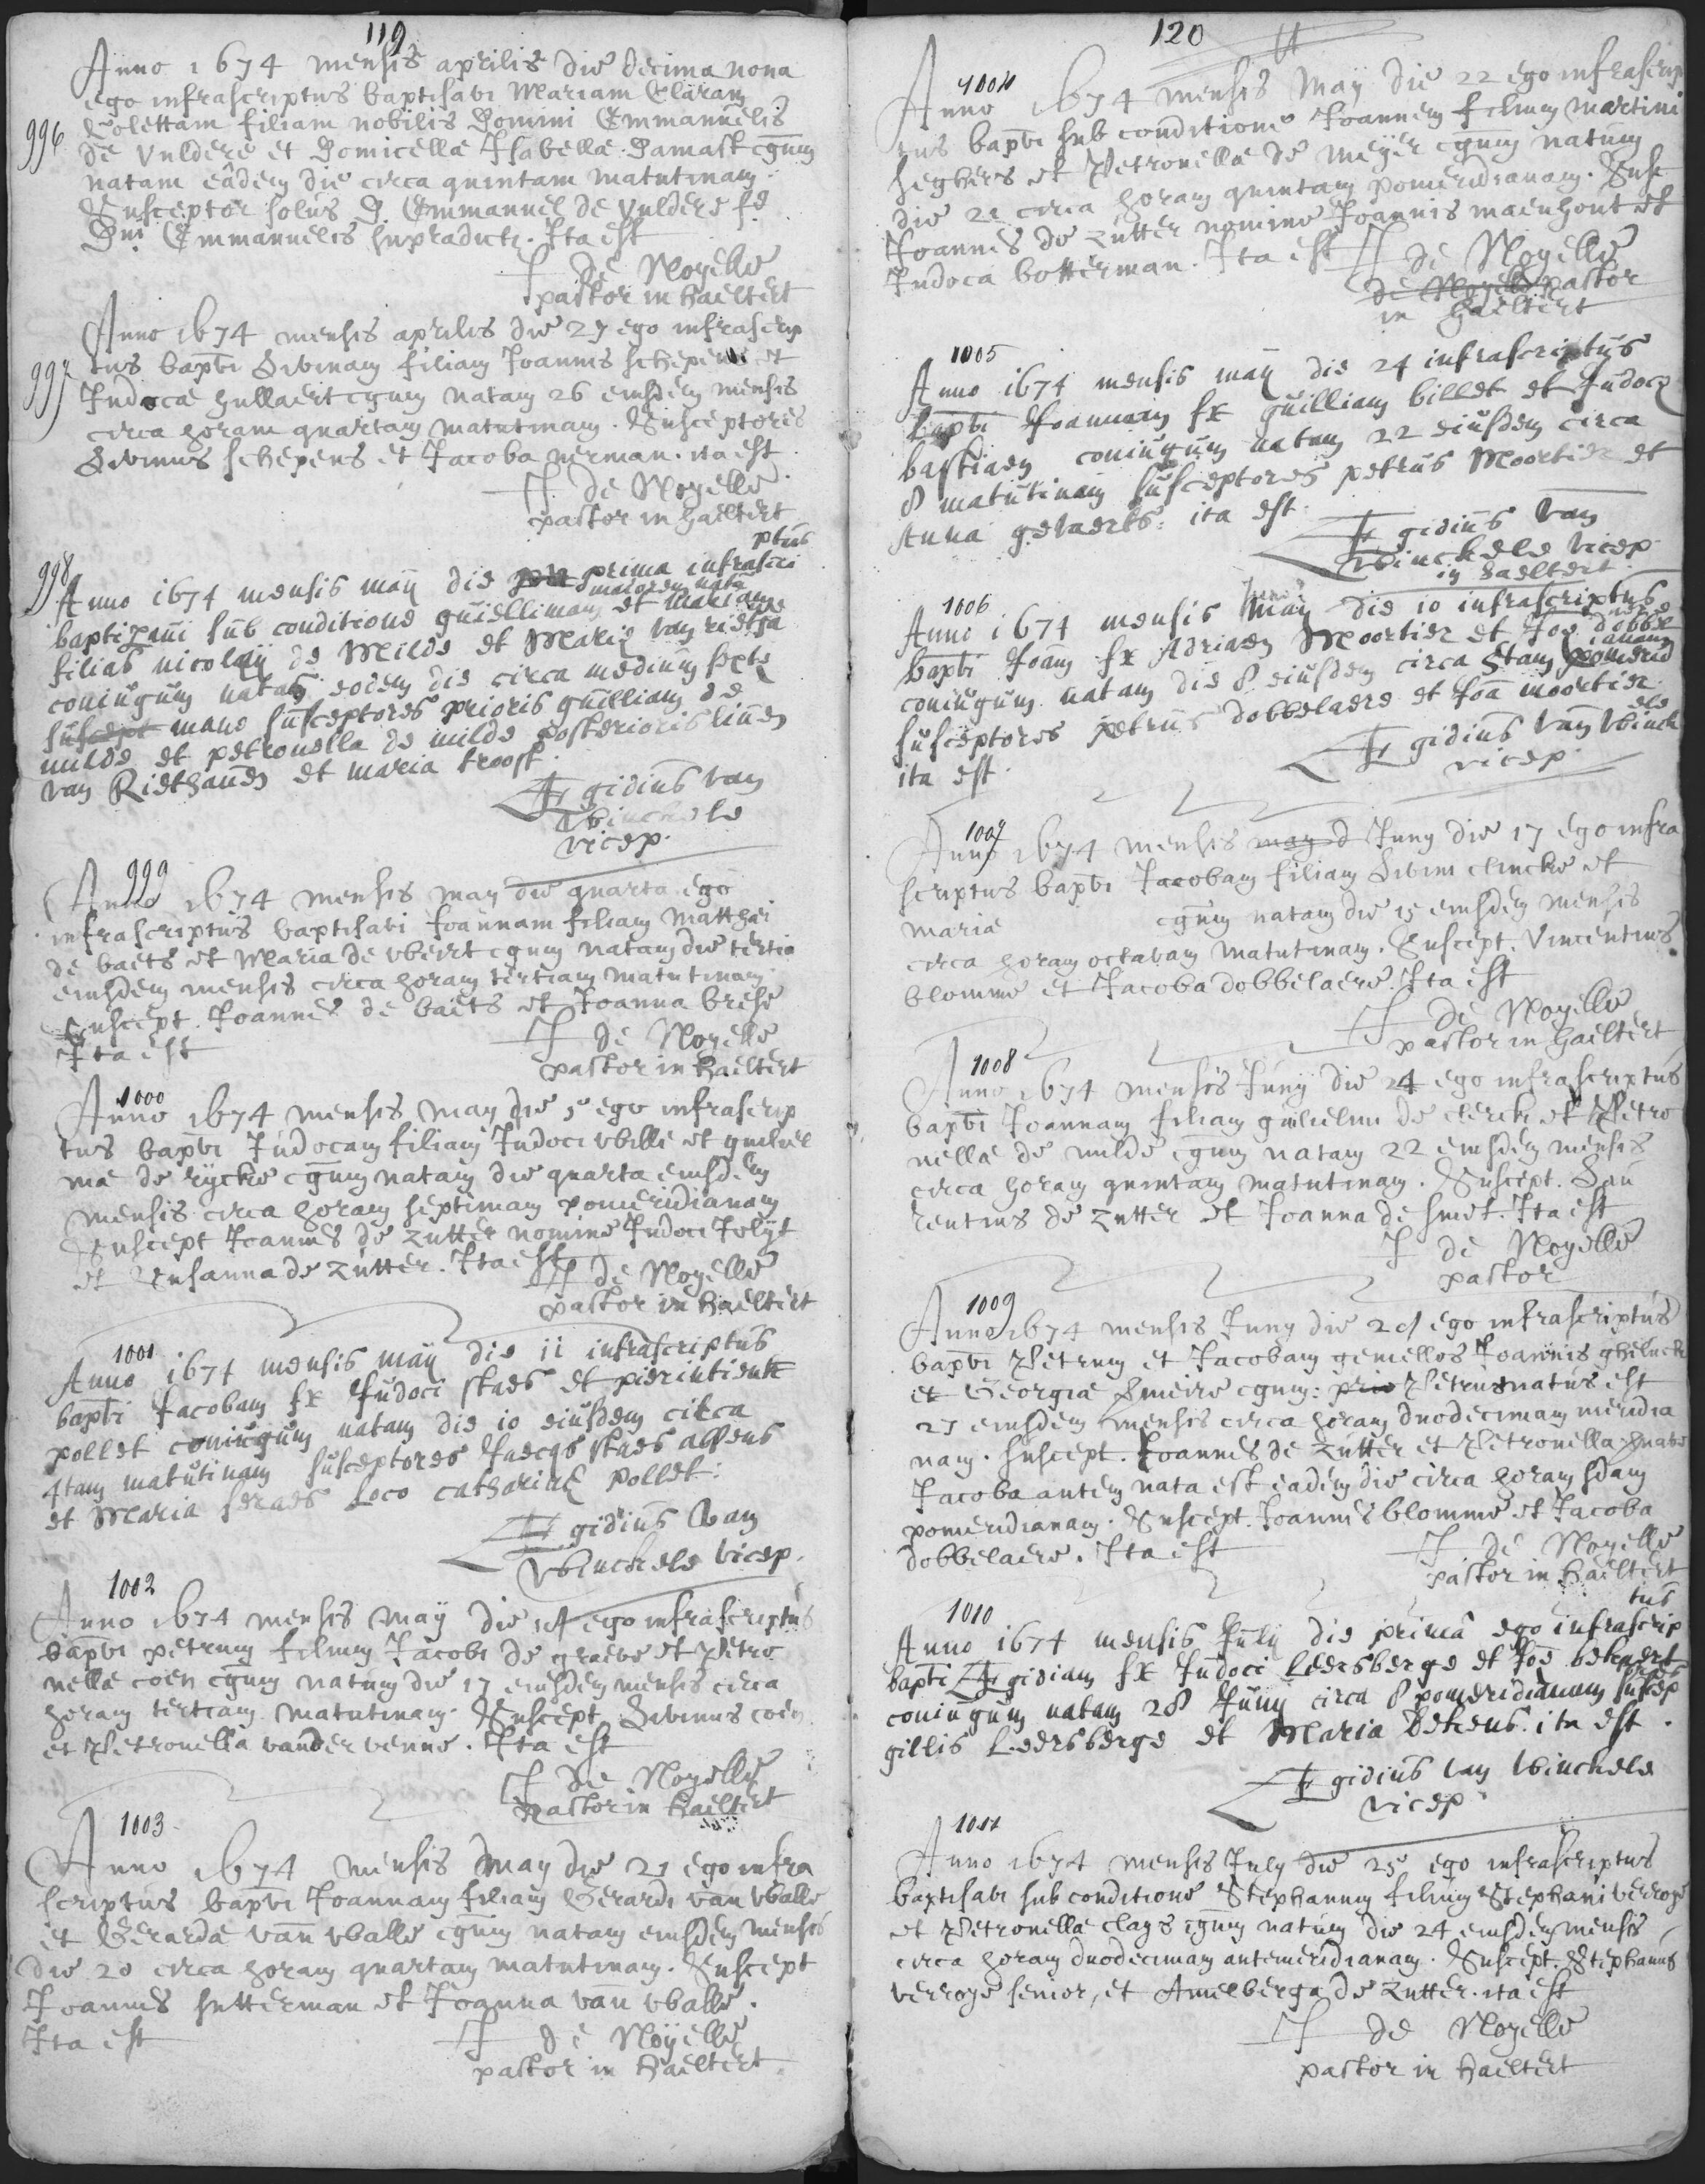 119
Anno 1674 mensis aprilis die decima nona
ego infrascriptus baptisavi Mariam Claram
996 Colettam filiam nobilis Domini Emmanuelis
de Vuldere et Domicellæ Isabellæ Damast cgum
natam eâdem die circa quintam matutinam.
Susceptor solus D. Emmanuel de Vuldere fs
Dni Emmanuelis supradicti. Ita est
F de Noyelle
pastor in haeltert
Anno 1674 mensis aprilis die 27 ego infrascrip
997 tus bapti Livinam filiam Joannis schepens et
Judocæ hullaert cgum natam 26 eiusdem mensis
circa horam quartam matutinam. Susceptores
Livinus schepens et Jacoba nerman. ita est
F. de Noyelle
pastor in haeltert
ptus
998 Anno 1674 mensis maij die prima infrascri
baptizavi sub conditione guiellimam et mariam
filias nicolaij de Milde et Mariæ van rietha
coniugum natas eodem die circa medium septe
suscept mane susceptores prioris guilliam de
milde et petronella de milde posterioris linen
van Riethauen et maria troost.
Ægidius van
Winckele
vicep.
999
Anno 1674 mensis may die quarta ego
infrascriptus baptisavi Joannam filiam Matthæi
de baets et Maria de wert cgum natam die tertia
eiusdem mensis circa horam tertiam matutinam
Suscept. Joannes de baets et Joanna brese
Ita est
F de Noyelle
pastor in haeltert
1000
Anno 1674 mensis may die 5 ego infrascrip
tus bapti Judocam filiam Judoci wille et guiliel
mæ de rycke cgum natam die quarta eiusdem
mensis circa horam septimam pomeridianam
Suscept Joannes de Zutter nomine Judoci Jelyt
et Susanna de Zutter. Ita est
F de Noyelle
pastor in haeltert
1001
Anno 1674 mensis maij die 11 infrascriptus
bapti Jacobam fx Judoci staes et pierintient
pollet coniugum natam die 10 eiusdem circa
4tam matutinam susceptores Judocqs staes alsens
et Maria seraes loco catharinæ pollet:
Ægidius Van
Winckele vicep.
1002
Anno 1674 mensis Maij die 18 ego infrascriptus
bapti petrum filium Jacobi de graeve et Petro
nellæ coen cgum natum die 17 eiusdem mensis circa
horam tertiam matutinam. Suscept Livinus coen
et Petronella vander venne. Ita est
F de Noyelle
pastor in haeltert
1003
Anno 1674 mensis may die 21 ego infra
scriptus bapti Joannam filiam Gerardi van walle
et Gerardæ van walle cgum natam eiusdem mensis
die 20 circa horam quartam matutinam. Suscept
Joannes sutterman et Joanna van walle.
Ita est
F de Noÿelle
pastor in haeltert
120
1004
Anno 1674 mensis Maij die 22 ego infrascrip
tus bapti sub conditione Joannem filium Martini
seghers et Petronellæ de meyer cgum natum
die 21 circa horam quintam pomeridianam. Susc
Joannes de Zutter nomine Joannis maenhout et
Judoca botterman. Ita est
F de Noyelle
de Noyelle pastor
in haeltert
1005
Anno 1674 mensis maij die 24 infrascriptus
bapti Joannam fx guilliam billet et Judocæ
bastiaen coniugum natam 22 eiusdem circa
8 matutinam susceptores petrus Moortier et
Anna gevaerts: ita est.
Ægidius van
Winckele vicep
in haeltert
1006
Anno 1674 mensis Junij die 10 infrascriptus
bapti Joam fx Adriaen Moortier et Joæ dobbel
coniugum natam die 8 eiusdem circa 5tam pomerid
susceptores petrus dobbelaere et Joa moortier
ita est.
Ægidius van Winck
ele
vicep.
1007
Anno 1674 mensis may d Juny die 17 ego infra
scriptus bapti Jacobam filiam Livini clincke et
mariæ cgum natam die 15 eiusdem mensis
circa horam octavam matutinam. Suscept. Vincentius
blomme et Jacoba dobbelaere. Ita est
F de Noyelle
pastor in haeltert
1008
Anno 1674 mensis Junij die 24 ego infrascriptus
bapti Joannam filiam guilielmi de clerck et Petro
nellæ de milde cgum natam 22 eiusdem mensis
circa horam quintam matutinam. Suscept. Lau
rentius de Zutter et Joanna de smet. Ita est
F de Noyelle
pastor
1009
Anno 1674 mensis Juny die 28 ego infrascriptus
bapti Petrum et Jacobam gemellos Joannis ghelinck
et Georgiæ Smeire cgum: prio Petrus natus est
27 eiusdem mensis circa horam duodecimam meridia
nam. suscept. Joannes de Zutter et Petronella
Jacoba autem nata est eadem die circa horam sdam
pomeridianam. Suscept. Joannes blomme et Jacoba
dobbelaere. Ita est
F de Noyelle
pastor in haeltert
1010
tus
Anno 1674 mensis Julij die prima ego infrascrip
bapti Ægidiam fx Judoci Leersberge et Joæ bekaert
coniugum natam 28 Junij circa 8 pomeridianam suscep
gillis Leersberge et Maria Bekens. ita est.
Ægidius van Winckele
vicep
1011
Anno 1674 mensis July die 25 ego infrascriptus
baptisavi sub conditione Stephanum filium Stephani verroye
et Petronellæ clays cgum natum die 24 eiusdem mensis
circa horam duodecimam antemeridianam. Suscept. Stephanus
verroye senior, et Amelberga de Zutter. ita est
F de Noyelle
pastor in haeltert